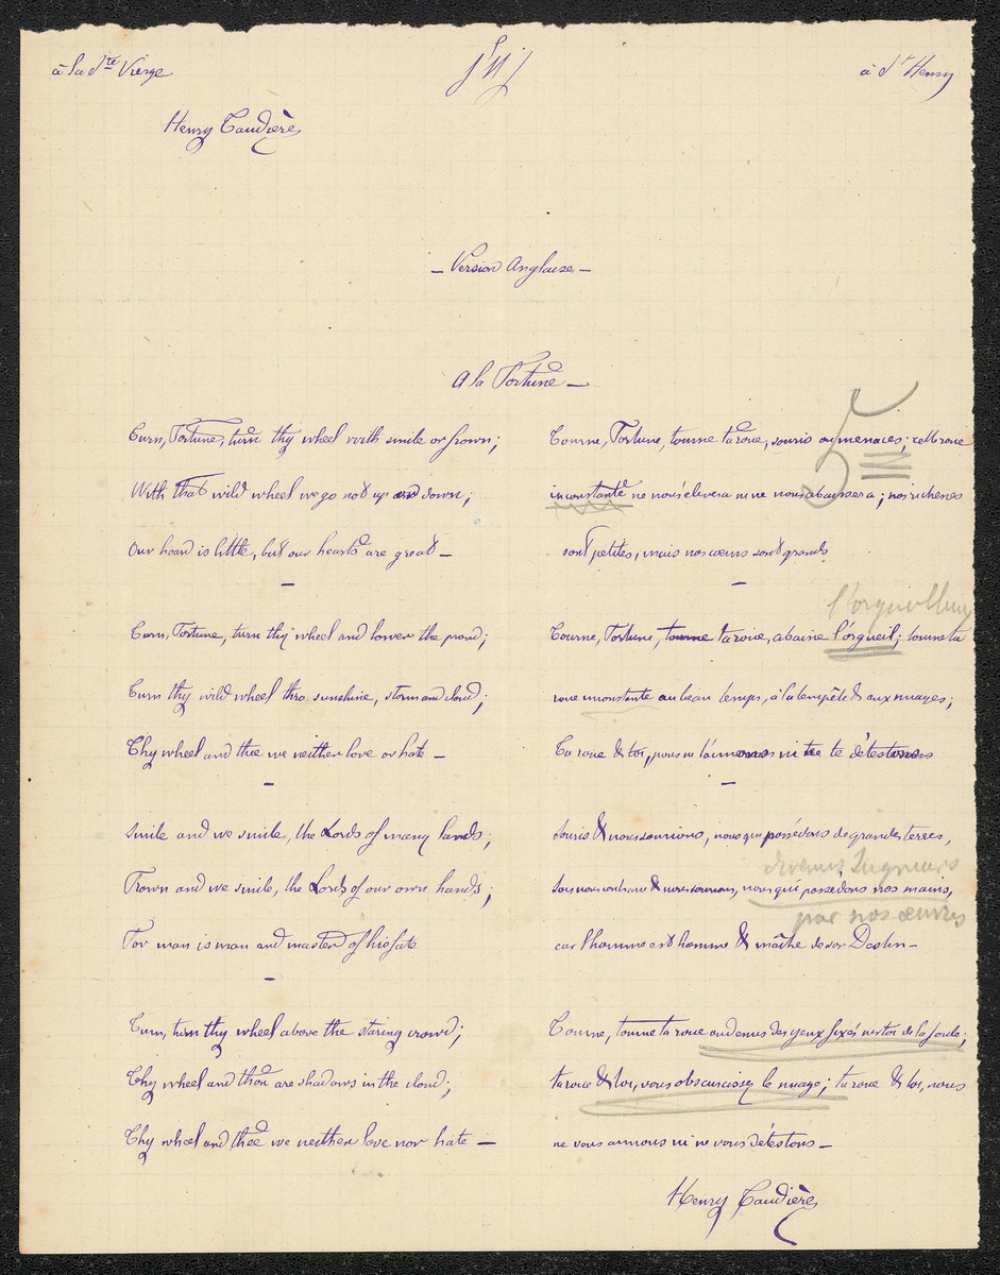 à la Ste Vierge
à St Henry
Henry Taudière
— Version Anglaise —
A la Fortune —
Turn, Fortune, turn thy wheel with smile or frown;
With that wild wheel we go not up and down;
Our hoard is little, but our hearts are great —
Turn, Fortune, turn thy wheel and lower the proud;
Turn thy wild wheel thro sunshine, storm and cloud;
Thy wheel and thee we neither love or hate —
Smile and we smile, the Lords of many lands;
Frown and we smile, the Lords of our own hands;
For man is man and master of his fate
Turn, turn thy wheel above the staring crowd;
Thy wheel and thou are shadows in the cloud;
Thy wheel and thee we neither love nor hate —
5
Tourne, Fortune, tourne ta roue, souris ou menaces; cette roue
inconstante ne nous élevera ni ne nous abaissera; nos richesses
sont petites, mais nos cœurs sont grands
l'orgueilleux
Tourne, Fortune, tourne ta roue, abaisse l'orgueil; tourne ta
roue inconstante au beau temps, à la tempête & aux nuages;
Ta roue & toi, nous ne t'aimons ni te te détestons
Souris & nous sourions, nous qui possédons de grandes terres,
seigneurs
& nous sourions, nous qui possédons nos mains,
par nos œuvres
car l'homme est homme & maître de son Destin —
Tourne, tourne ta roue au dessus des yeux fixés sur toi de la foule;
ta roue & toi, vous obscurcissez le nuage; ta roue & toi, nous
ne vous aimons ni ne vous détestons —
Henry Taudière